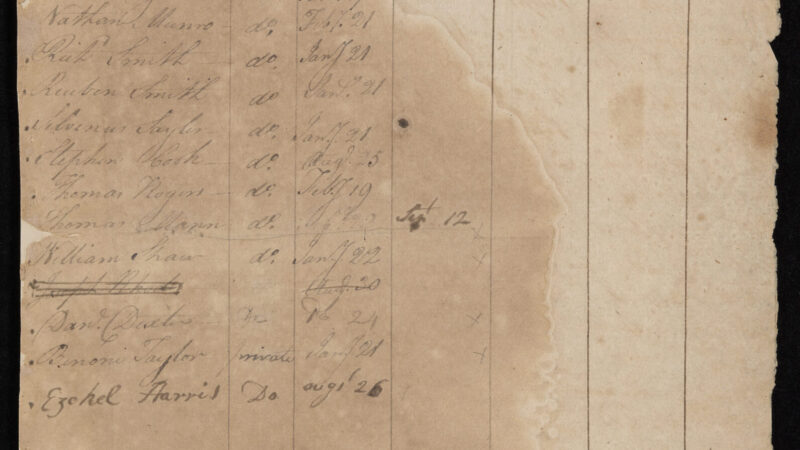 Nathan Munro do. Feby. 21
Richd. Smith do. Jany 21
Reuben Smith do Jany. 21
Silvenus Saylor do. Jany 21
Stephen Cook do. Augt. 25
Thomas Rogers do. Feby 19
Thomas Mann do. Sept 12 x
William Shaw do. Jany 22 x
Augt. 20
Danl. Dexter Do Feb 24 x
Benoni Taylor private Jany 21 x
Ezekel Harris Do augst 26